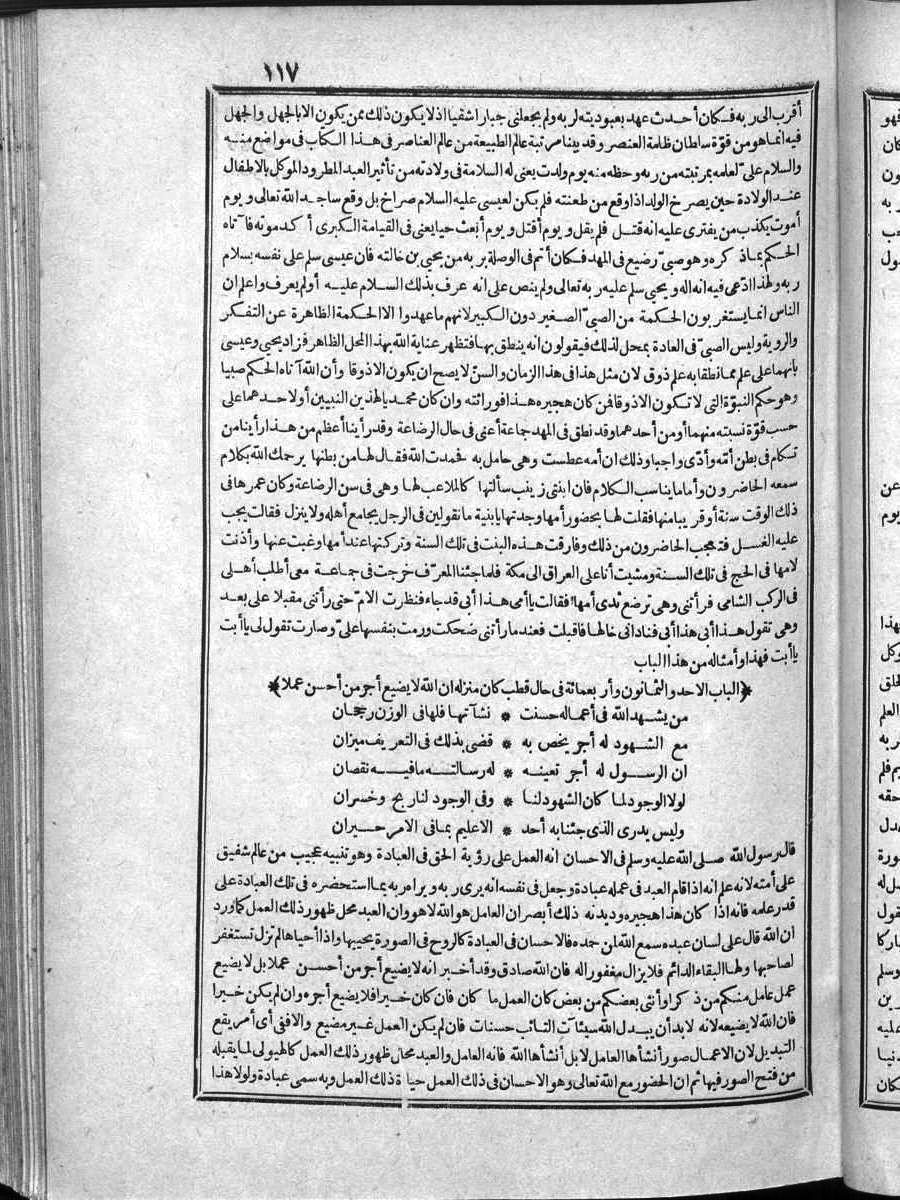 ١١٧
أقرب الى ربه فكان أحدث عهد بعبوديته لربه ولم يجعلني جبارا شقيا اذ لا يكون ذلك ممن يكون الا بالجهل والجهل
فيه انما هو من قوة سلطان ظلمة العنصر وقد بينا مرتبة عالم الطبيعة من عالم العناصر في هذا الكتاب في مواضع منه
والسلام على لعلمه بمرتبته من ربه وحظه منه يوم ولدت يعني له السلامة في ولادته من تأثير العبد المطرود الموكل بالاطفال
عند الولادة حين يصرخ الولد اذا وقع من طعنته فلم يكن لعيسى عليه السلام صراخ بل وقع ساجد الله تعالى ويوم
أموت يكذب من يفترى عليه انه قتل فلم يقل ويوم أقتل ويوم أبعث حيا يعني في القيامة الكبرى أكد موته فآتاه
الحكم بما ذكره وهو صبي رضيع في المهد فكان أتم في الوصلة بربه من يحيى بن خالته فان عيسى سلم على نفسه بسلام
ربه ولهذا ادعى فيه انه اله ويحيى سلم عليه ربه تعالى ولم ينص على انه عرف بذلك السلام عليه أو لم يعرف واعلم ان
الناس انما يستغربون الحكمة من الصبي الصغير دون الكبير لانهم ما عهدوا الا الحكمة الظاهرة عن التفكر
والروية وليس الصبي في العادة بمحل لذلك فيقولون انه ينطق بها فتظهر عناية الله بهذا المحل الظاهر فزاد يحيى وعيسى
بأنهما على علم مما نطقا به علم ذوق لان مثل هذا في هذا الزمان والسن لا يصح ان يكون الا ذوقا وأن الله آتاه الحكم صبيا
وهو حكم النبوة التي لا تكون الا ذوقا فمن كان هجيره هذا فوراثته وان كان محمديا لهذين النبيين أو لاحدهما على
حسب قوة نسبته منهما أو من أحدهما وقد نطق في المهد جماعة أعنى في حال الرضاعة وقد رأينا أعظم من هذا رأينا من
تكلم في بطن أمه وأدى واجبا وذلك ان أمه عطست وهي حامل به فحمدت الله فقال لها من بطنها يرحمك الله بكلام
سمعه الحاضرون وأما ما يناسب الكلام فان ابنتي زينب سألتها كالملاعب لها وهي في سن الرضاعة وكان عمرها في
ذلك الوقت سنة أو قريبا منها فقلت لها بحضور أمها وجدتها يا بنية ما تقولين في الرجل يجامع أهله ولا ينزل فقالت يجب
عليه الغسل فتعجب الحاضرون من ذلك وفارقت هذه البنت في تلك السنة وتركتها عند أمها وغبت عنها وأذنت
لامها في الحج في تلك السنة ومشيت أنا على العراق الى مكة فلما جئنا المعرف خرجت في جماعة معى أطلب أهلى
في الركب الشامى فرأتنى وهي ترضع ثدى أمها فقالت يا أمى هذا أبى قد جاء فنظرت الام حتى رأتنى مقبلا على بعد
وهي تقول هذا أبى هذا أبى فنادانى خالها فاقبلت فعندما رأتنى ضحكت ورمت بنفسها على وصارت تقول لى يا أبت
يا أبت فهذا وأمثاله من هذا الباب
﴿الباب الاحد والثمانون وأربعمائة في حال قطب كان منزله ان الله لا يضيع أجر من أحسن عملا﴾
من يشهد الله في أعماله حسنت * نشآتها فلها في الوزن رجحان
مع الشهود له أجر يخص به * قضى بذلك في التعريف ميزان
ان الرسول له أجر تعينه * له رسالته ما فيه نقصان
لولا الوجود لما كان الشهود لنا * وفي الوجود لنا ربح وخسران
وليس يدرى الذى جئنا به أحد * الا عليم بما في الامر حيران
قال رسول الله صلى الله عليه وسلم في الاحسان انه العمل على رؤية الحق في العبادة وهو تنبيه عجيب من عالم شفيق
على أمته لانه علم انه اذا قام العبد في عمله عبادة وجعل في نفسه انه يرى ربه ويراه ربه بما استحضره في تلك العبادة على
قدر علمه فانه اذا كان هذا هجيره وديدنه ذلك أبصر ان العامل هو الله لا هو وان العبد محل ظهور ذلك العمل كما ورد
ان الله قال على لسان عبده سمع الله لمن حمده فالاحسان في العبادة كالروح في الصورة يحييها واذا أحياها لم تزل تستغفر
لصاحبها ولها البقاء الدائم فلا يزال مغفورا له فان الله صادق وقد أخبر انه لا يضيع أجر من أحسن عملا بل لا يضيع
عمل عامل منكم من ذكر او أنثى بعضكم من بعض كان العمل ما كان فان كان خيرا فلا يضيع أجره وان لم يكن خيرا
فان الله لا يضيعه لانه لا بد أن يبدل الله سيئآت التائب حسنات فان لم يكن العمل غير مضيع والا ففي أى أمر يقع
التبديل لان الاعمال صور أنشأها العامل لا بل أنشأها الله فانه العامل والعبد محل ظهور ذلك العمل كالهيولى لما يقبله
من فتح الصور فيها ثم ان الحضور مع الله تعالى وهو الاحسان في ذلك العمل حياة ذلك العمل وبه سمى عبادة ولولا هذا